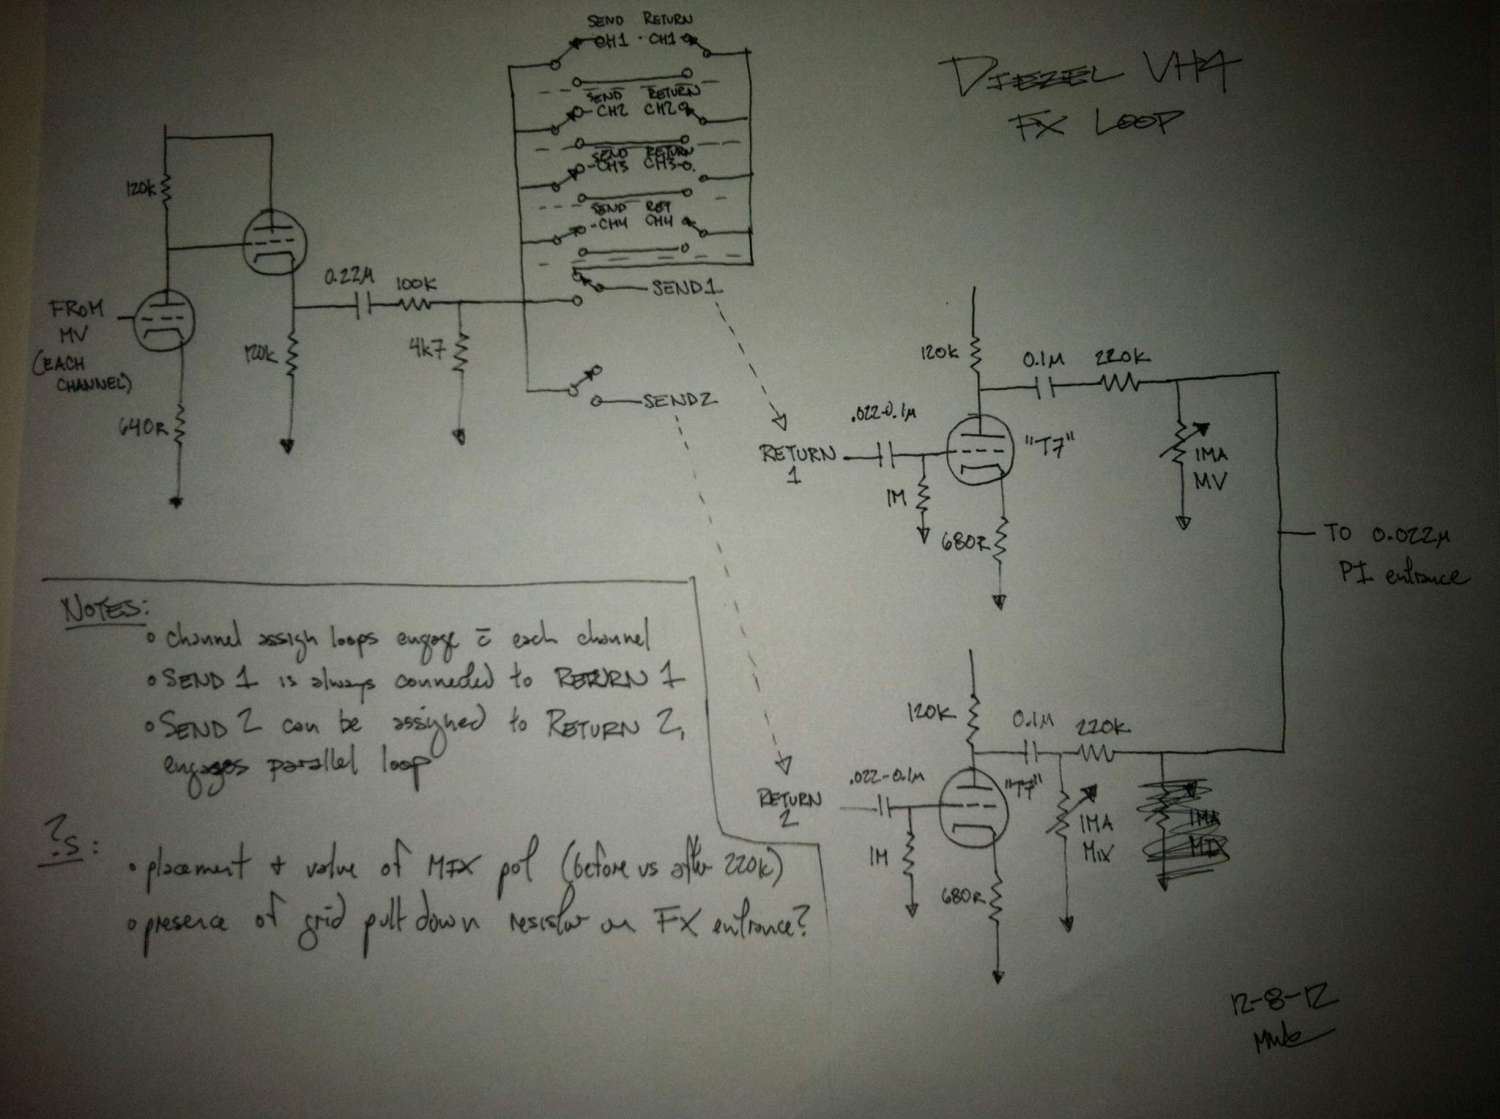 SEND RETURN
CH1 · CH1
SEND RETURN
CH2 CH2
SEND RETURN
-CH3 CH3-
SEND RET
-CH4 CH4
DIEZEL VH4
FX LOOP
120K
FROM
MV
(EACH
CHANNEL)
640R
120K
0.22µ
100K
4K7
SEND1
SEND2
120K
0.1µ
220K
.022-0.1µ
RETURN
1
1M
"T7"
680R
1MA
MV
TO 0.022µ
PI entrance
120K
0.1µ
220K
.022-0.1µ
RETURN
2
1M
"T7"
680R
1MA
MIX
1MA
MIX
NOTES:
channel assign loops engage c̄ each channel
SEND 1 is always connected to RETURN 1
SEND 2 can be assigned to RETURN 2,
engages parallel loop
?s:
placement + value of MIX pot (before vs after 220K)
presence of grid pull down resistor on FX entrance?
12-8-12